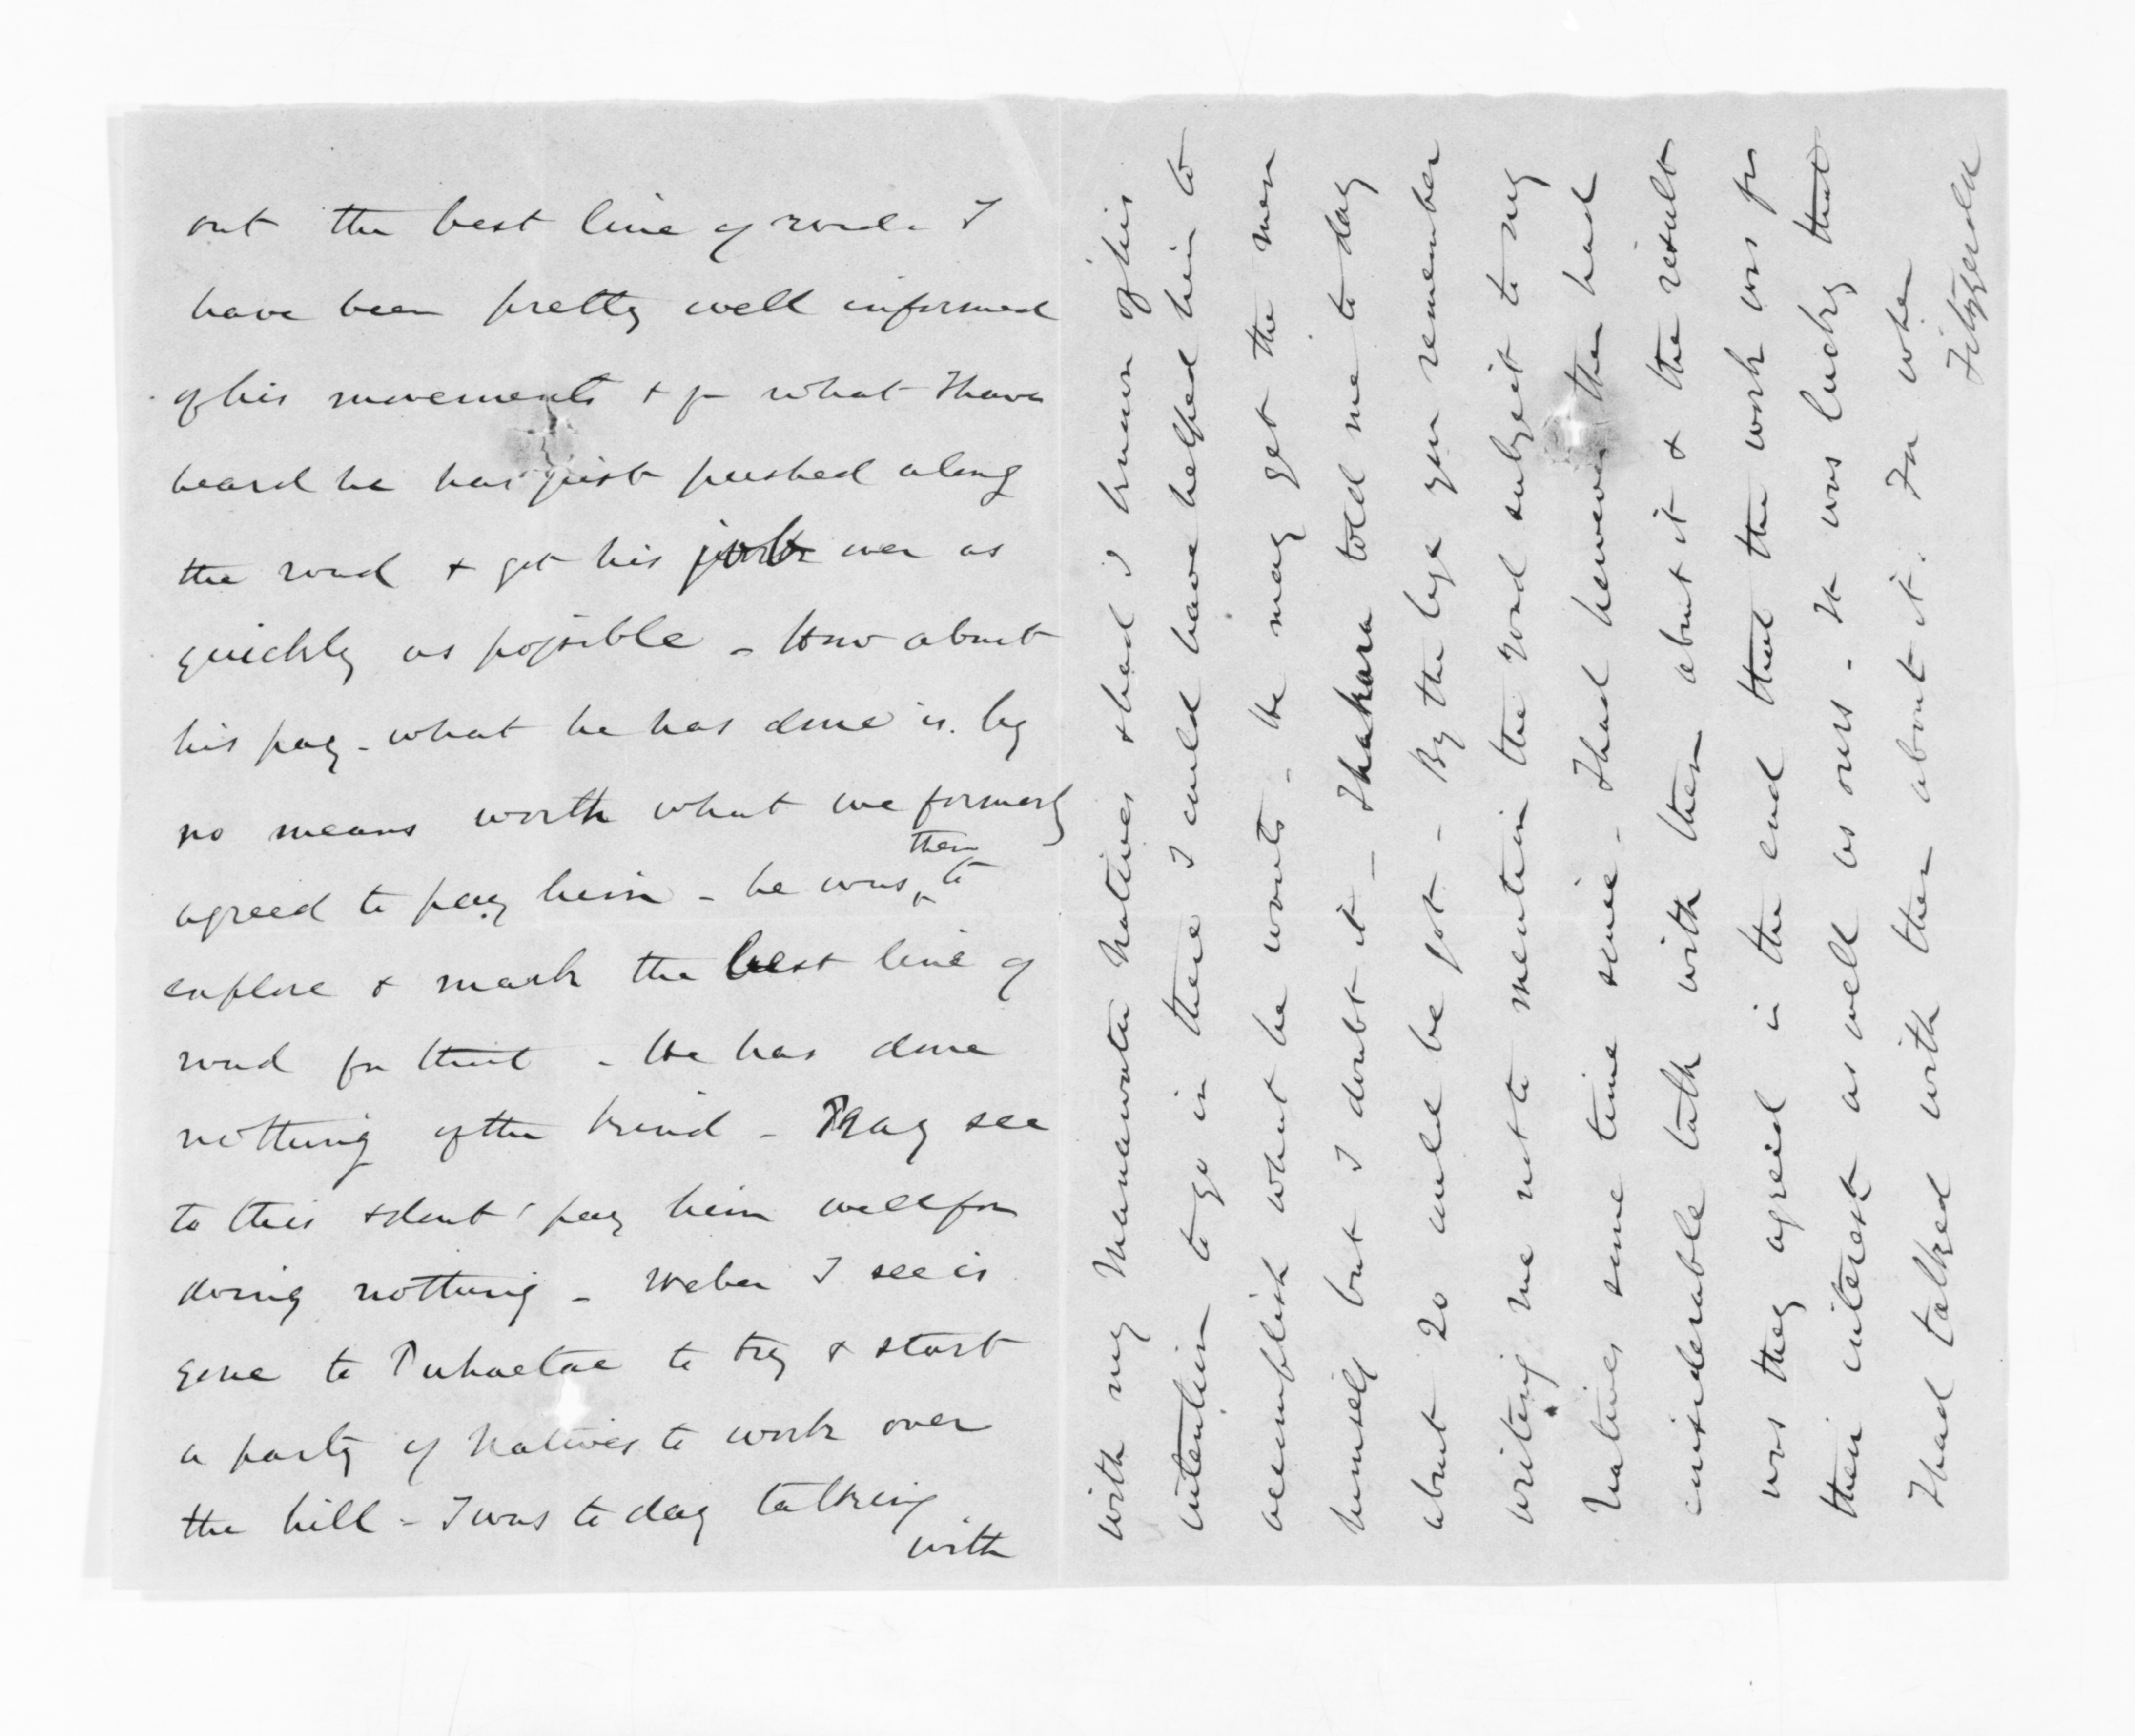 out the best line of road. I
have been pretty well informed
of his movements & fr what I have
heard he has just pushed along
the road & got his work over as
quickly as possible - How about
his pay - what he has done is by
no means worth what we formerly
agreed to pay him - he was then to
explore & mark the best line of
road for that - He has done
nothing of the kind - Pray see
to this & dont' pay him well for
doing nothing - Weber I see is
gone to Puhaetae to try & start
a party of Natives to work over
the hill - I was to day talking
with
with my Manawatu Natives & had I known of his
intention to go in there I could have helped him to
accomplish what he wants - He may get the men
himself but I doubt it - Ihakara told me to day
about 20 could be got - By the bye you remember
writing me not to mention the road subject to my
Natives some time since - I had however then had
considerable talk with them about it & the result
was they agreed in the end that the work was for
their interest as well as ours - It was lucky that
I had talked with them about it. For when
Fitzgerald